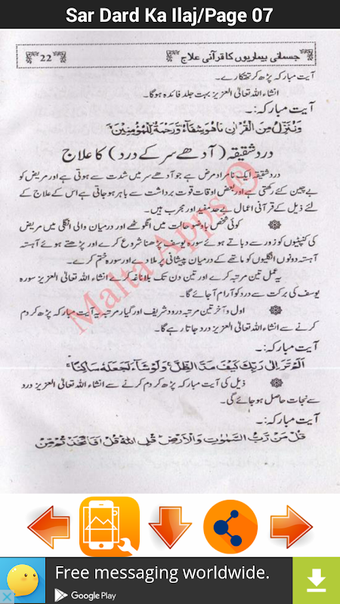 Sar Dard Ka Ilaj/Page 07
جسمانی بیماریوں کا قرآنی علاج
22
آیت مبارکہ پڑھ کر تھکارے۔
انشاء اللہ تعالی العزیز بہت جلد فائدہ ہوگا۔
آیت مبارکہ:۔
وَنُنَزِّلُ مِنَ الْقُرْاٰنِ مَا هُوَ شِفَآءٌ وَّرَحْمَةٌ لِّلْمُؤْمِنِيْنَ
درد شقیقہ (آدھے سر کے درد) کا علاج
درد شقیقہ ایک نامراد مرض ہے جو آدھے سر میں شدت سے ہوتی ہے اور مریض کو
بے چین کئے رکھتی ہے اور بعض اوقات قوت برداشت سے باہر ہو جاتی ہے اس کے علاج کے
لئے ذیل کے قرآنی اعمال بے حد مفید اور مجرب ہیں۔
کوئی شخص باوضو حالت میں انگوٹھے اور درمیان والی انگلی میں مریض
کی کنپٹیوں کو زور سے دباتے ہوئے سورہ یوسف پڑھنا شروع کرے اور پڑھتے ہوئے آہستہ
آہستہ دونوں انگلیوں کو ماتھے کے درمیان پیشانی پر ملا دے اور سورہ ختم کرے۔
یہ عمل تین مرتبہ کرے اور تین دن تک بلاناغہ کرے انشاء اللہ تعالی العزیز سورہ
یوسف کی برکت سے درد کو آرام آجائے گا۔
اول و آخر تین مرتبہ درود شریف اور گیارہ مرتبہ یہ آیت مبارکہ پڑھ کر دم
کرنے سے انشاء اللہ تعالی العزیز درد جاتا رہے گا۔
آیت مبارکہ:۔
اَلَمْ تَرَ اِلٰى رَبِّكَ كَيْفَ مَدَّ الظِّلَّ وَلَوْ شَآءَ لَجَعَلَهٗ سَاكِنًا
ذیل کی آیت مبارکہ پڑھ کر دم کرنے سے انشاء اللہ تعالی العزیز درد
سے نجات حاصل ہو جائے گی۔
آیت مبارکہ:۔
قُلْ مَنْ رَّبُّ السَّمٰوٰتِ وَالْاَرْضِ قُلِ اللّٰهُ قُلْ اَفَاتَّخَذْتُمْ مِّنْ
Malta Apps
Free messaging worldwide.
Google Play